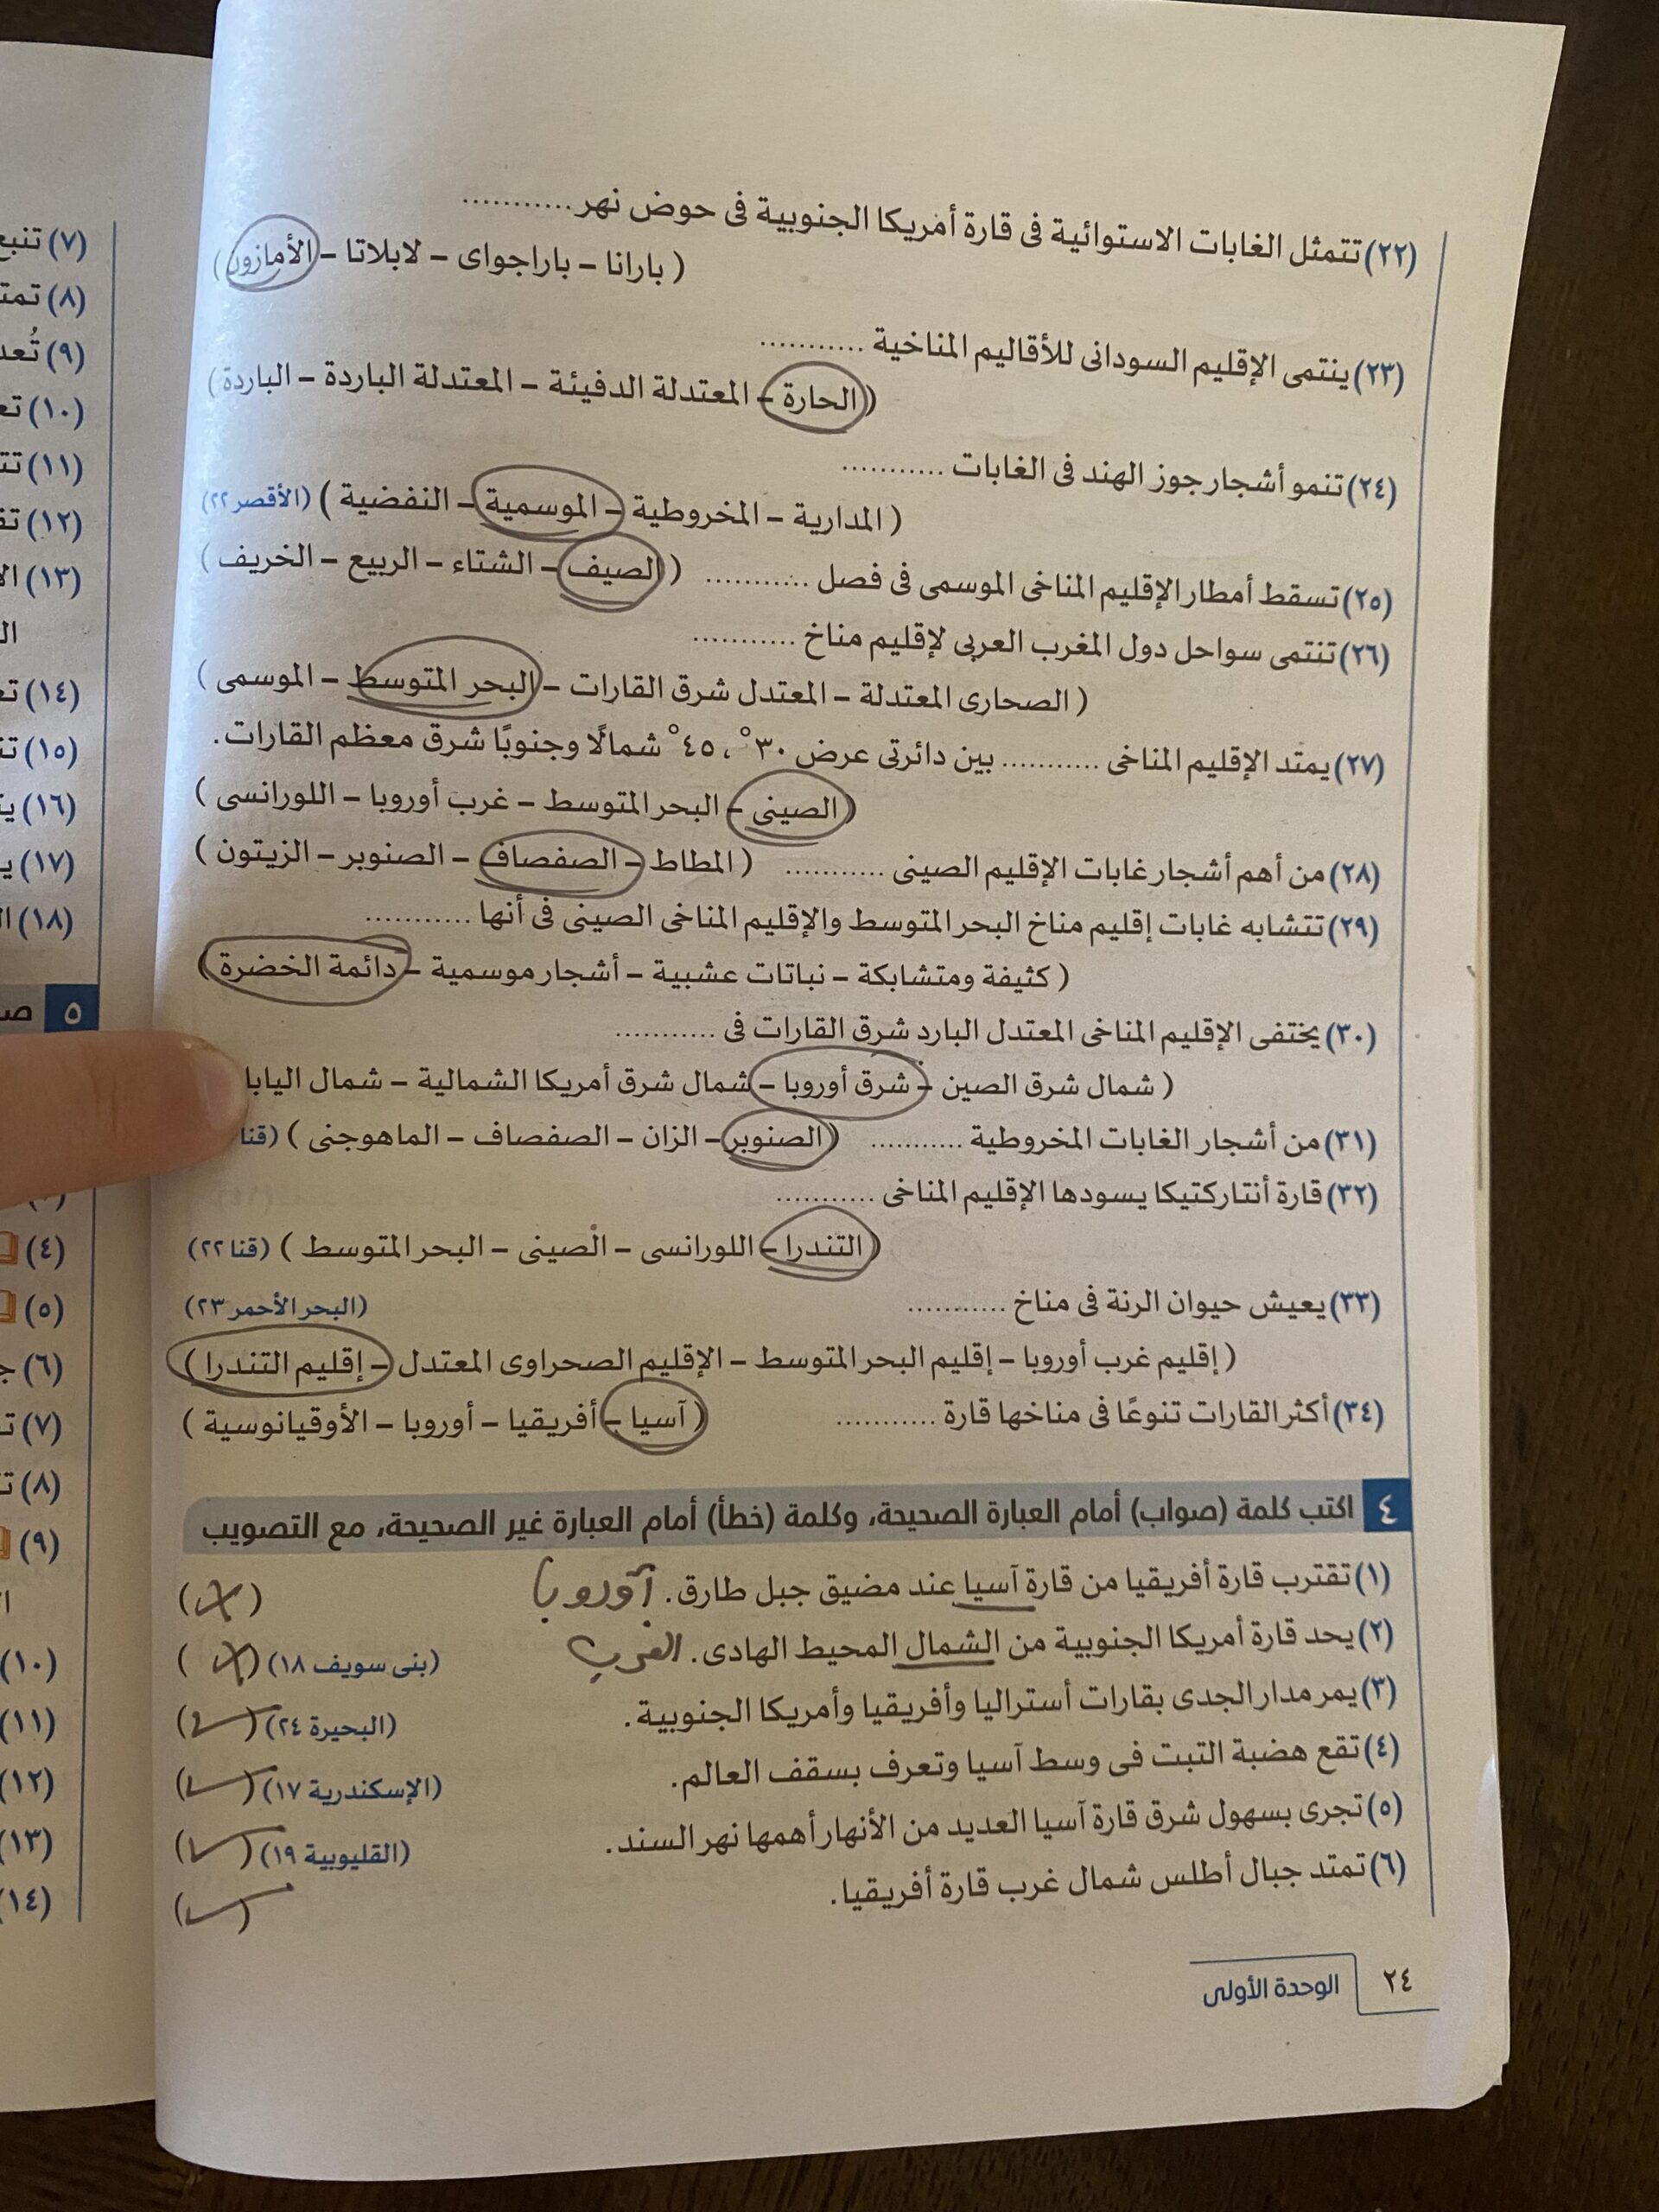 (٢٢) تتمثل الغابات الاستوائية فى قارة أمريكا الجنوبية فى حوض نهر ...........
( بارانا – باراجواى – لابلاتا – الأمازون )
(٢٣) ينتمى الإقليم السودانى للأقاليم المناخية ...........
( الحارة – المعتدلة الدفيئة – المعتدلة الباردة – الباردة )
(٢٤) تنمو أشجار جوز الهند فى الغابات ...........
( المدارية – المخروطية – الموسمية – النفضية ) (الأقصر ٢٢)
(٢٥) تسقط أمطار الإقليم المناخى الموسمى فى فصل ........... ( الصيف – الشتاء – الربيع – الخريف )
(٢٦) تنتمى سواحل دول المغرب العربى لإقليم مناخ ...........
( الصحارى المعتدلة – المعتدل شرق القارات – البحر المتوسط – الموسمى )
(٢٧) يمتد الإقليم المناخى ........... بين دائرتى عرض ٣٠°، ٤٥° شمالًا وجنوبًا شرق معظم القارات.
( الصينى – البحر المتوسط – غرب أوروبا – اللورانسى )
(٢٨) من أهم أشجار غابات الإقليم الصينى ........... ( المطاط – الصفصاف – الصنوبر – الزيتون )
(٢٩) تتشابه غابات إقليم مناخ البحر المتوسط والإقليم المناخى الصينى فى أنها ...........
( كثيفة ومتشابكة – نباتات عشبية – أشجار موسمية – دائمة الخضرة )
(٣٠) يختفى الإقليم المناخى المعتدل البارد شرق القارات فى ...........
( شمال شرق الصين – شرق أوروبا – شمال شرق أمريكا الشمالية – شمال
(٣١) من أشجار الغابات المخروطية ........... ( الصنوبر – الزان – الصفصاف – الماهوجنى ) (قنا
(٣٢) قارة أنتاركتيكا يسودها الإقليم المناخى ...........
( التندرا – اللورانسى – الصينى – البحر المتوسط ) (قنا ٢٢)
(٣٣) يعيش حيوان الرنة فى مناخ ........... (البحر الأحمر ٢٣)
( إقليم غرب أوروبا – إقليم البحر المتوسط – الإقليم الصحراوى المعتدل – إقليم التندرا )
(٣٤) أكثر القارات تنوعًا فى مناخها قارة ........... ( آسيا – أفريقيا – أوروبا – الأوقيانوسية )
٤ اكتب كلمة (صواب) أمام العبارة الصحيحة، وكلمة (خطأ) أمام العبارة غير الصحيحة، مع التصويب
(١) تقترب قارة أفريقيا من قارة آسيا عند مضيق جبل طارق. أوروبا (✗)
(٢) يحد قارة أمريكا الجنوبية من الشمال المحيط الهادى. الغرب (بنى سويف ١٨) (✗)
(٣) يمر مدار الجدى بقارات أستراليا وأفريقيا وأمريكا الجنوبية. (البحيرة ٢٤) (✓)
(٤) تقع هضبة التبت فى وسط آسيا وتعرف بسقف العالم. (الإسكندرية ١٧) (✓)
(٥) تجرى بسهول شرق قارة آسيا العديد من الأنهار أهمها نهر السند. (القليوبية ١٩) (✓)
(٦) تمتد جبال أطلس شمال غرب قارة أفريقيا. (✓)
٢٤ الوحدة الأولى
(٧)
(٨)
(٩)
(١٠)
(١١)
(١٢)
(١٣)
(١٤)
(١٥)
(١٦)
(١٧)
(١٨)
٥
(٤)
(٥)
(٦)
(٧)
(٨)
(٩)
(١٠)
(١١)
(١٢)
(١٣)
(١٤)